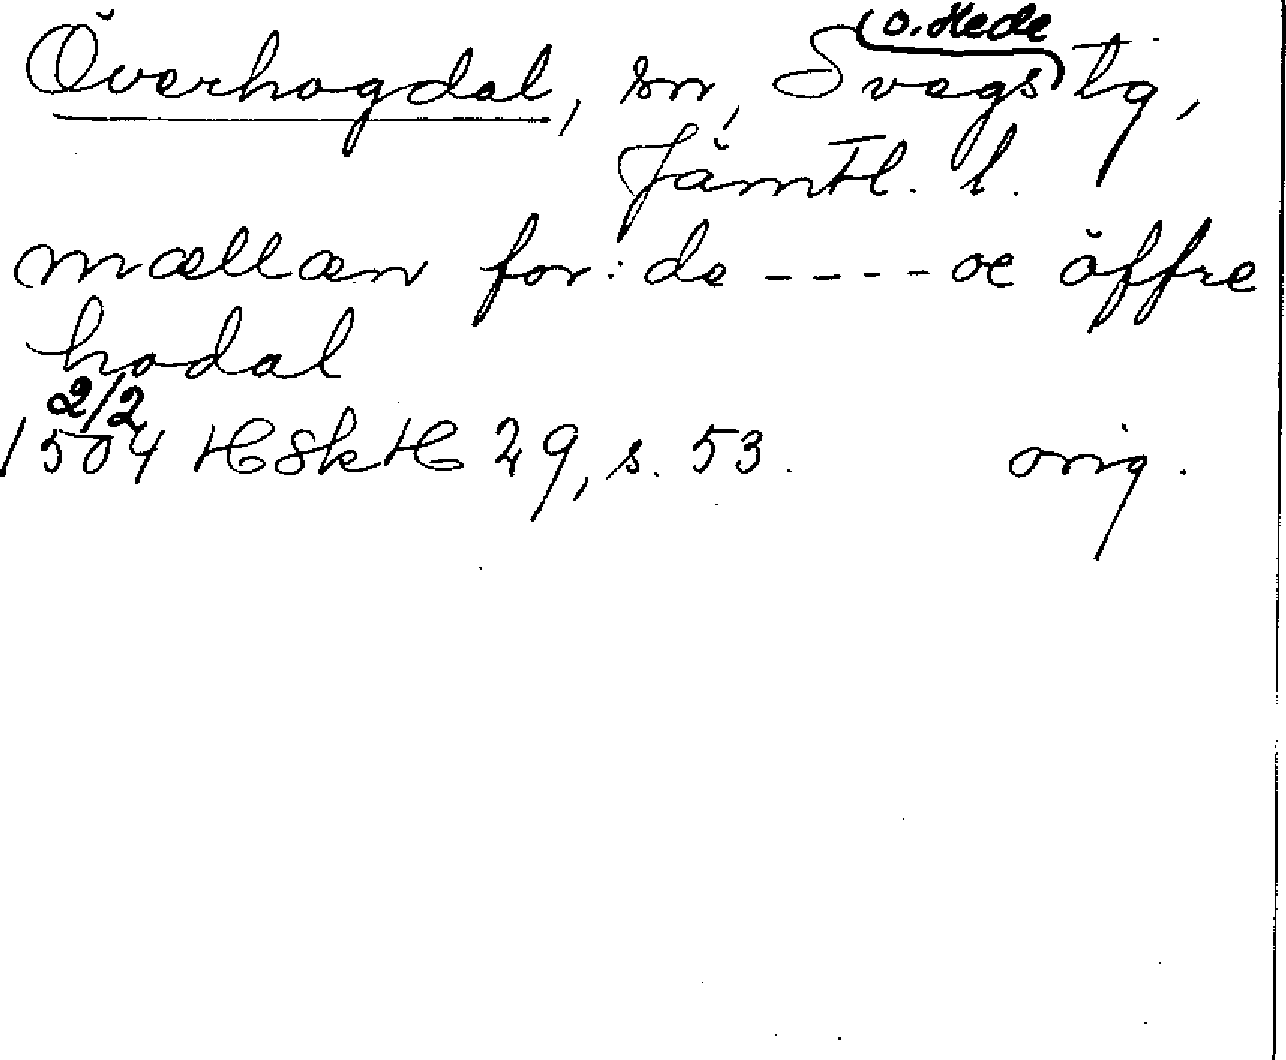 o. Hede
Överhogdal, sn, Svegs tg,
Jämtl. l.
mællæn for: de ---- oc öffre
hodal
2/2
1504 HSkH 29, s. 53. orig.